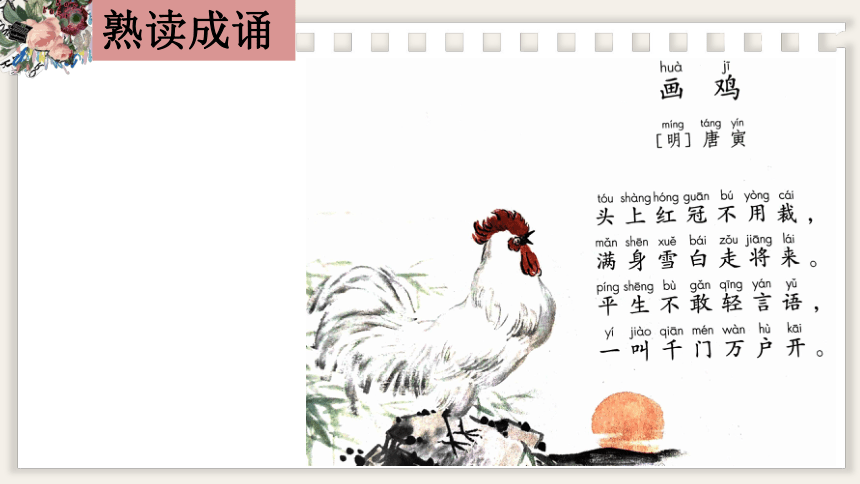 熟读成诵
huà jī
画 鸡
míng táng yín
[明] 唐 寅
tóu shàng hóng guān bú yòng cái
头 上 红 冠 不 用 裁 ，
mǎn shēn xuě bái zǒu jiāng lái
满 身 雪 白 走 将 来 。
píng shēng bù gǎn qīng yán yǔ
平 生 不 敢 轻 言 语 ，
yí jiào qiān mén wàn hù kāi
一 叫 千 门 万 户 开 。